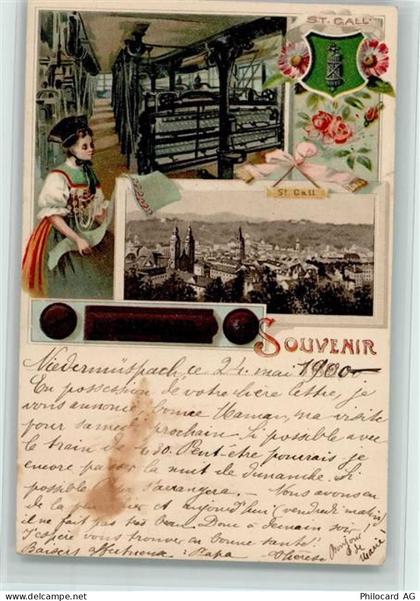 ST. GALL
St. Gall
SOUVENIR
Niedermüspach, ce 24. mai 1900
En possession de votre chère lettre, je
vous annonce, bonne Maman, ma visite
pour samedi prochain si possible avec
le train de 4.30. Peut-être pourrais je
encore passer la nuit de dimanche. Si
possible Papa s'arrangera. — Nous avons eu
de la pluie hier et aujourd'hui (vendredi matin)
il ne fait pas très beau. Donc à demain soir!
J'espère vous trouver en bonne santé!
Baisers affectueux à Papa Thérèse
Bonjour
de
Marie
www.philarchiv.com | Copyright Philarchiv AG